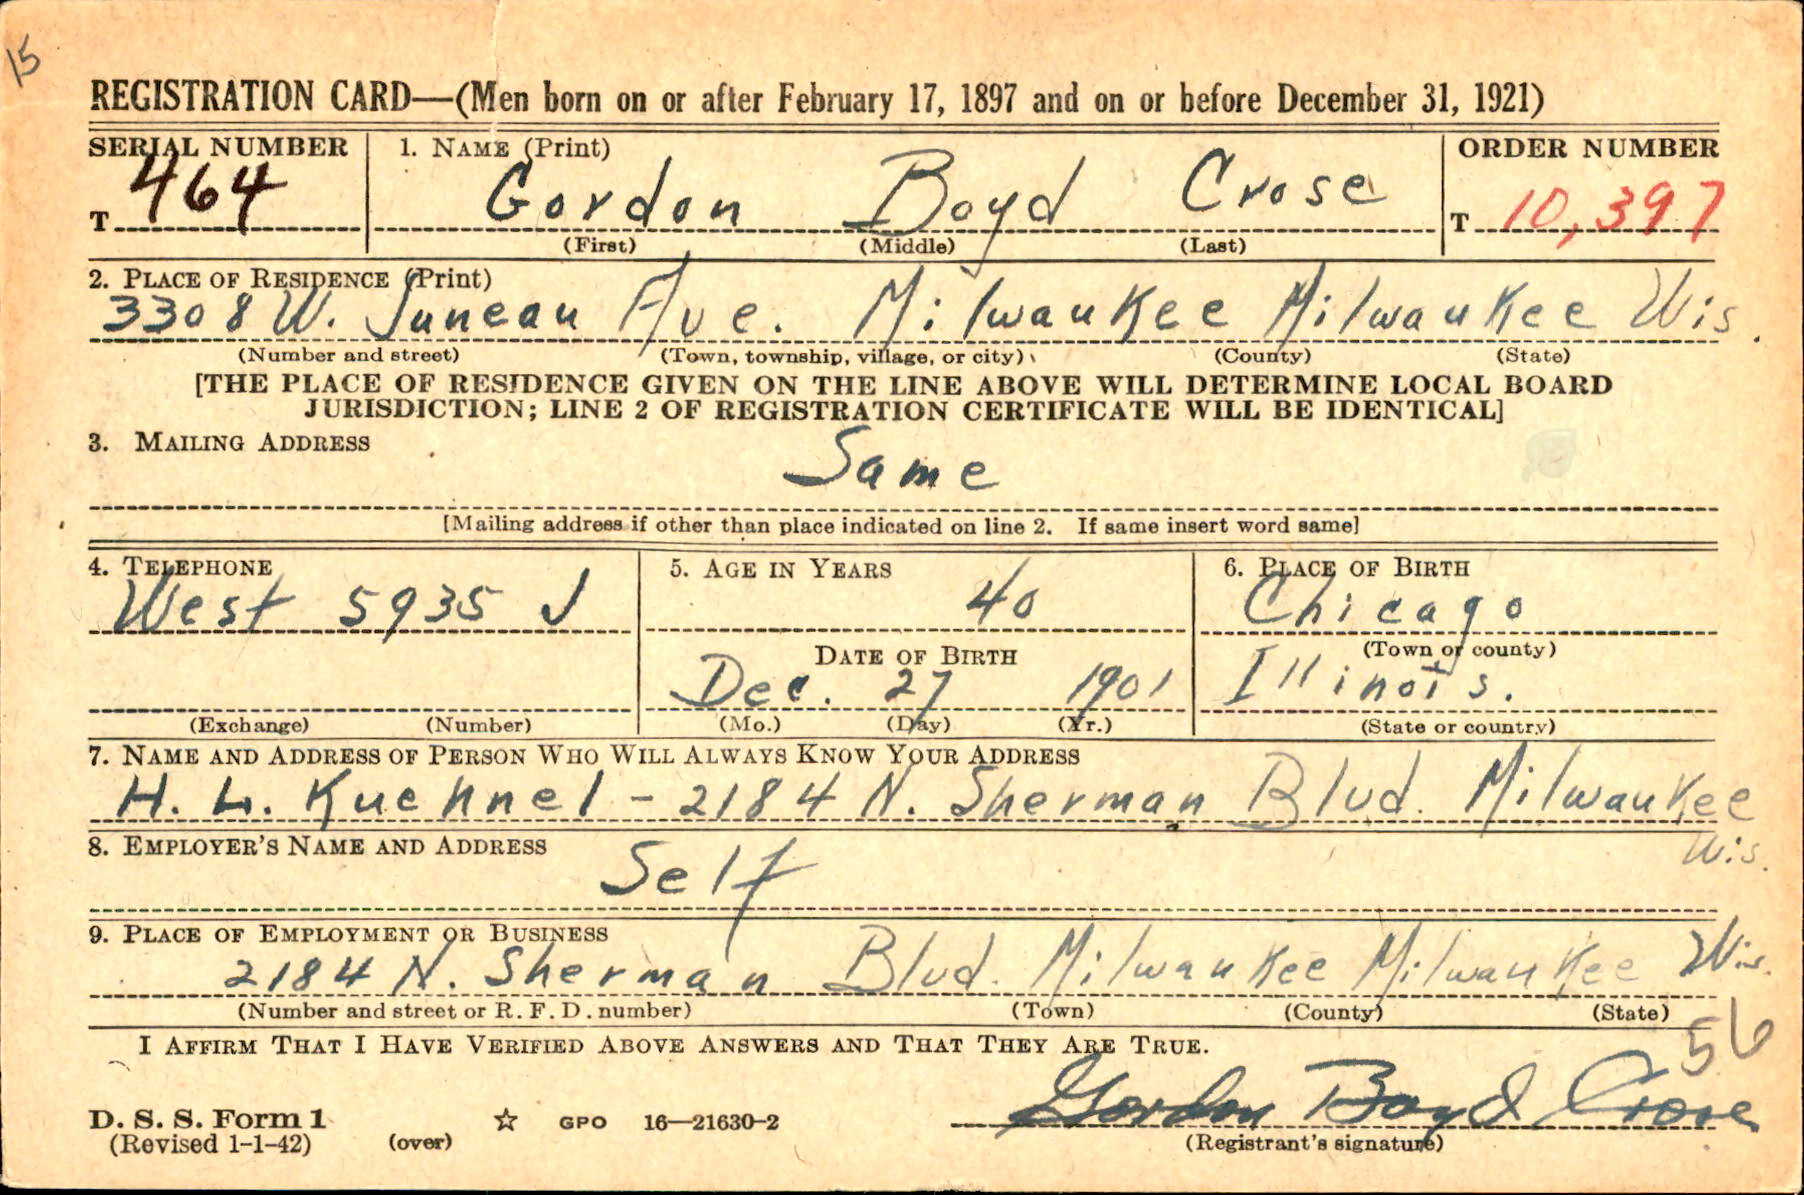 15
REGISTRATION CARD—(Men born on or after February 17, 1897 and on or before December 31, 1921)
SERIAL NUMBER 1. NAME (Print) ORDER NUMBER
T 464 Gordon Boyd Crose T 10,397
(First) (Middle) (Last)
2. PLACE OF RESIDENCE (Print)
3308 W. Juneau Ave. Milwaukee Milwaukee Wis.
(Number and street) (Town, township, village, or city) (County) (State)
[THE PLACE OF RESIDENCE GIVEN ON THE LINE ABOVE WILL DETERMINE LOCAL BOARD
JURISDICTION; LINE 2 OF REGISTRATION CERTIFICATE WILL BE IDENTICAL]
3. MAILING ADDRESS
Same
[Mailing address if other than place indicated on line 2. If same insert word same]
4. TELEPHONE 5. AGE IN YEARS 6. PLACE OF BIRTH
West 5935 J 40 Chicago
DATE OF BIRTH (Town or county)
Dec. 27 1901 Illinois.
(Exchange) (Number) (Mo.) (Day) (Yr.) (State or country)
7. NAME AND ADDRESS OF PERSON WHO WILL ALWAYS KNOW YOUR ADDRESS
H. L. Kuehnel - 2184 N. Sherman Blvd. Milwaukee
Wis.
8. EMPLOYER'S NAME AND ADDRESS
Self
9. PLACE OF EMPLOYMENT OR BUSINESS
2184 N. Sherman Blvd. Milwaukee Milwaukee Wis.
(Number and street or R. F. D. number) (Town) (County) (State)
56
I AFFIRM THAT I HAVE VERIFIED ABOVE ANSWERS AND THAT THEY ARE TRUE.
Gordon Boyd Crose
D. S. S. Form 1 ☆ GPO 16—21630-2
(Revised 1-1-42) (over) (Registrant's signature)